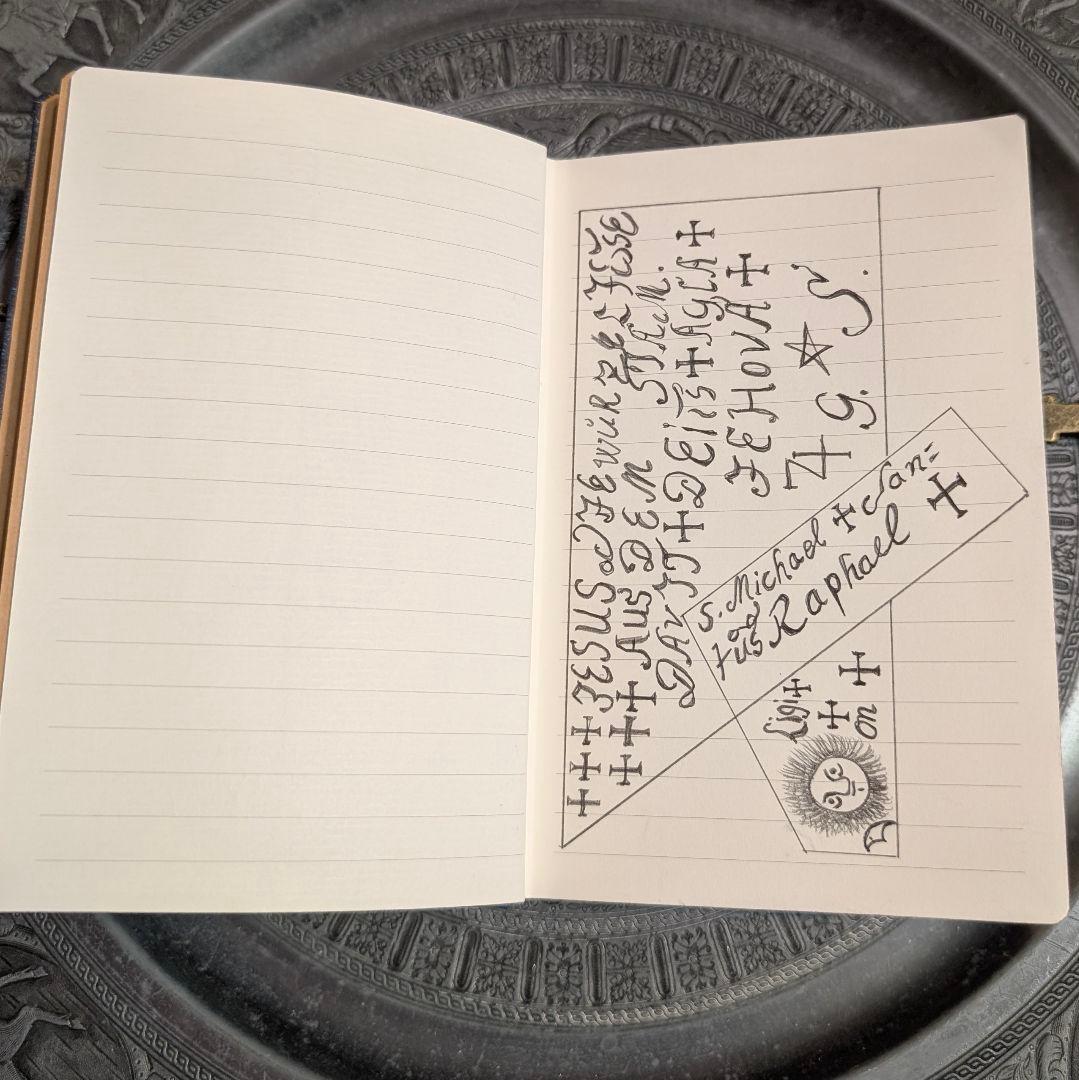 ✠ ✠ ✠ JESUS x JEWÜRZEL JESSE
✠ ✠ ✠ AUS DEN STAM.
DAVIT ✠ DEIIS ✠ AGLA ✠
JEHOVA ✠
♃ G. ☆ S.
S. Michael ✠ San=
tus Raphael ✠
Ligi ✠
✠
on ✠